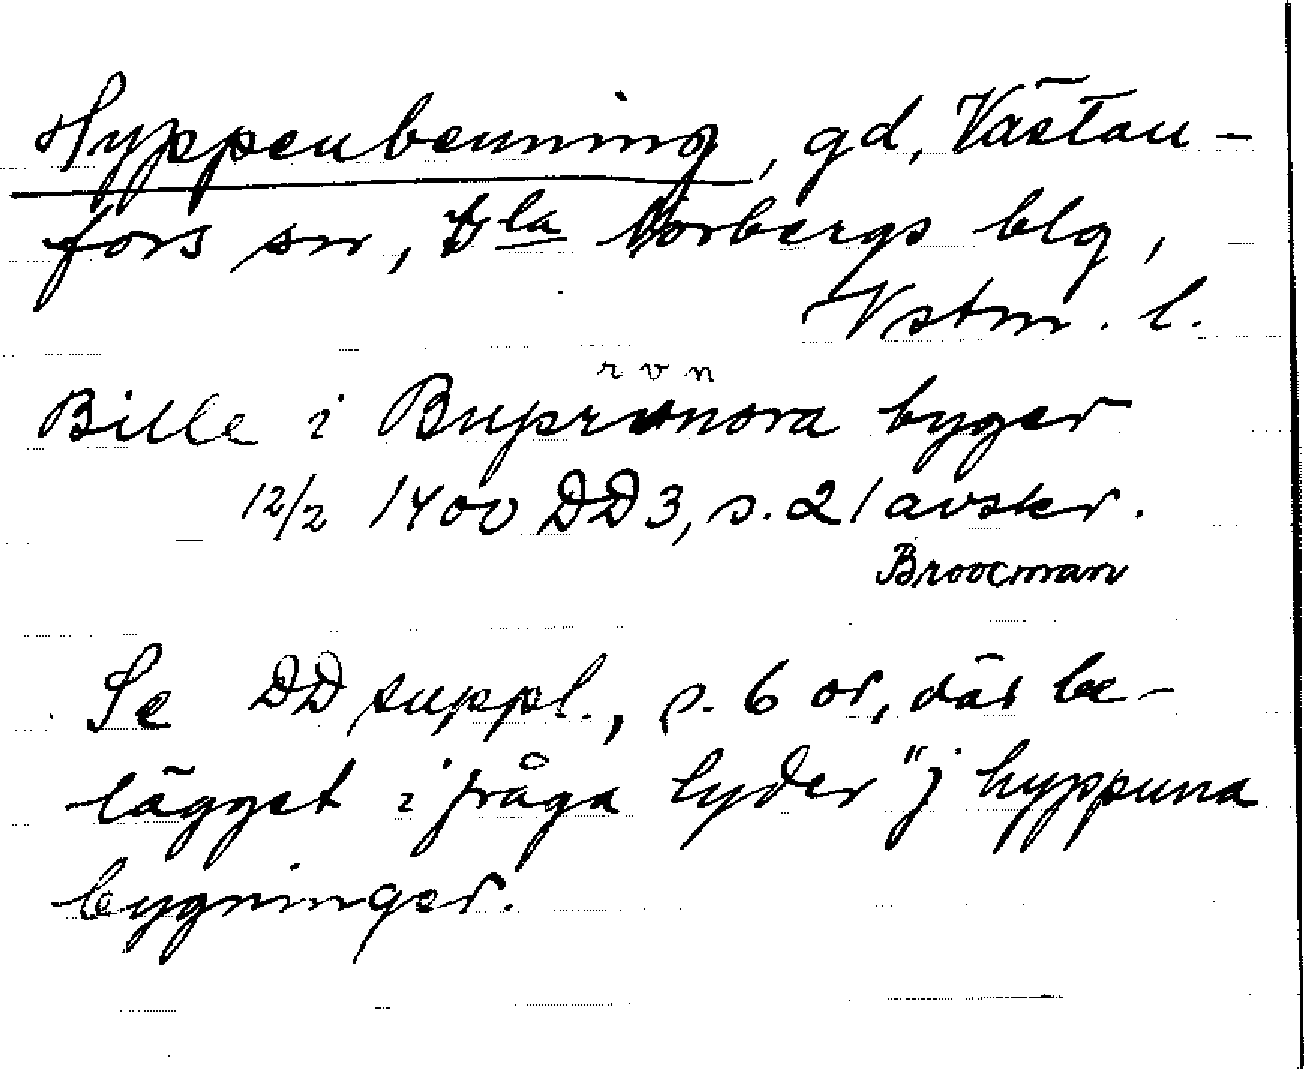 Hyppenbenning, gd, Västan-
fors sn, Gla Norbergs blg,
Vstm. l.
r v n
Bille i Buprvnora byger
12/2 1400 DD3, s. 21 avskr.
Broocman
Se DD suppl., s. 6 o, där be-
lägget i fråga lyder "j hyppuna
bygninger.